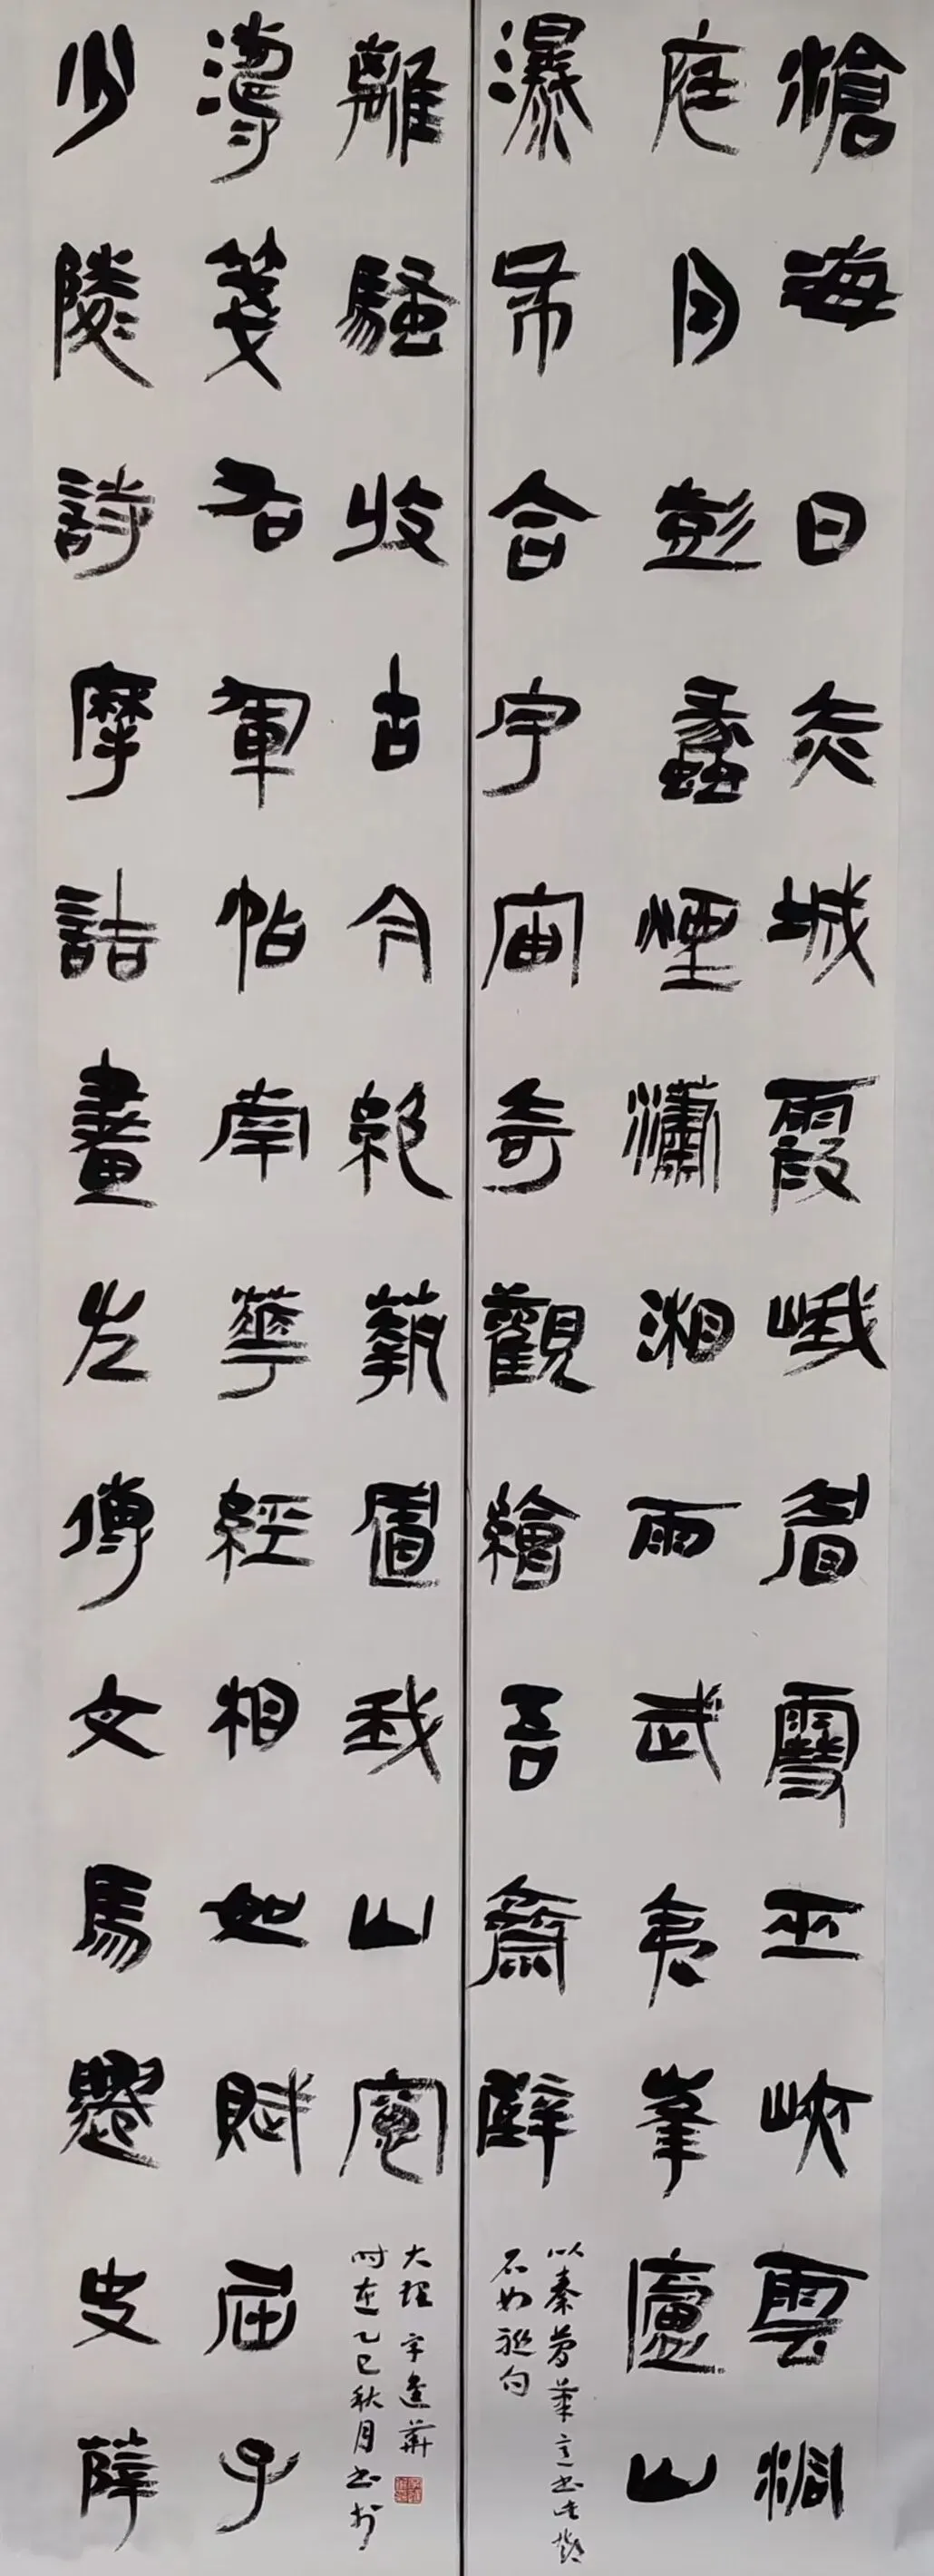 滄海日赤城霞峨眉雪巫峽雲洞
庭月彭蠡煙瀟湘雨武夷峯廬山
瀑布合宇宙奇觀繪吾齋壁
以秦簡筆意书此鄧
石如聯句
少陵詩摩詰畫左傳文馬遷史薛
濤箋右軍帖南華經相如賦屈子
離騷收古今絕藝置我山窗
时在乙巳秋月书於
大理